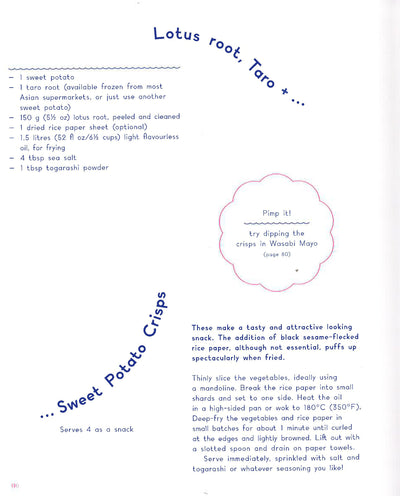 Lotus root, Taro + ...
– 1 sweet potato
– 1 taro root (available frozen from most
Asian supermarkets, or just use another
sweet potato)
– 150 g (5½ oz) lotus root, peeled and cleaned
– 1 dried rice paper sheet (optional)
– 1.5 litres (52 fl oz/6½ cups) light flavourless
oil, for frying
– 4 tbsp sea salt
– 1 tbsp togarashi powder
Pimp it!
try dipping the
crisps in Wasabi Mayo
(page 60)
... Sweet Potato Crisps
Serves 4 as a snack
These make a tasty and attractive looking
snack. The addition of black sesame-flecked
rice paper, although not essential, puffs up
spectacularly when fried.
Thinly slice the vegetables, ideally using
a mandoline. Break the rice paper into small
shards and set to one side. Heat the oil
in a high-sided pan or wok to 180°C (350°F).
Deep-fry the vegetables and rice paper in
small batches for about 1 minute until curled
at the edges and lightly browned. Lift out with
a slotted spoon and drain on paper towels.
Serve immediately, sprinkled with salt and
togarashi or whatever seasoning you like!